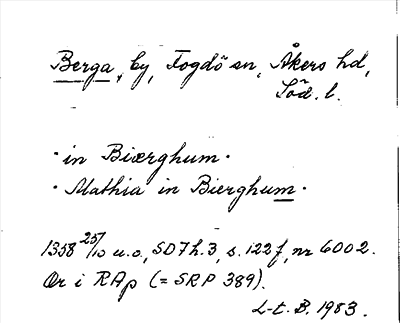 Berga, by, Fogdö sn, Åkers hd,
Söd. l.
· in Biærghum ·
· Mathia in Bierghum ·
1358 25/10 u.o., SD7h.3, s. 122 f, nr 6002.
Or i RAp (= SRP 389).
L-t. B. 1983.